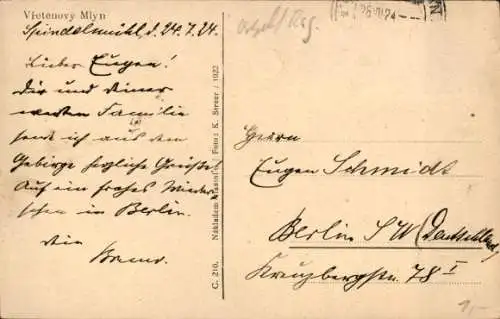 Vietenový Mlyn
Spindelmühl, d. 24.7.24.
Lieber Eugen!
Dir und deiner
werten Familie
sende ich aus dem
Gebirge herzliche Grüsse!
Auf ein frohes Wieder-
sehen in Berlin.
Dein
Bruno.
C. 210. Nákladem Foto: K. Streer: 1922
Herrn
Eugen Schmidt
Berlin SW (Deutschland)
Kreuzbergstr. 78 I
1,-